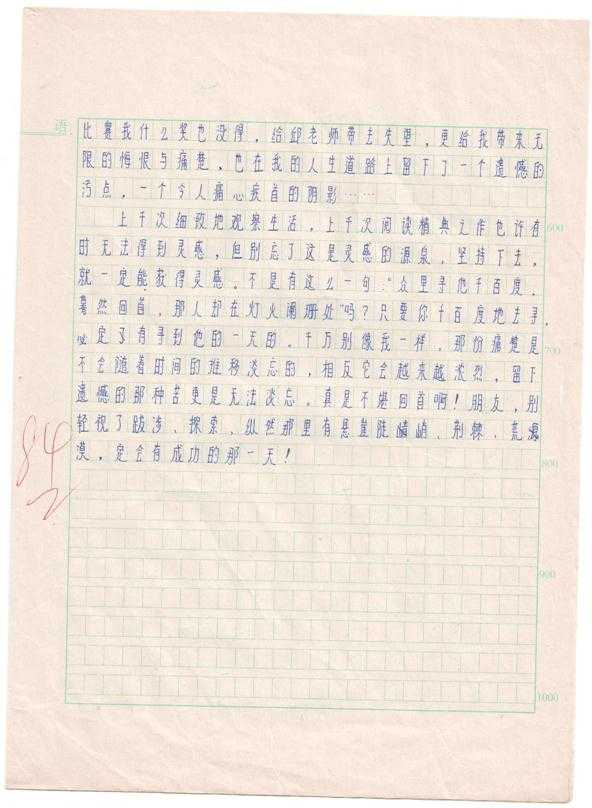 语
比赛我什么奖也没得，给邱老师带去失望，更给我带来无
限的悔恨与痛楚，也在我的人生道路上留下了一个遗憾的
污点，一个令人痛心疾首的阴影……
上千次细致地观察生活，上千次阅读精典之作也许有
600
时无法得到灵感，但别忘了这是灵感的源泉，坚持下去，
就一定能获得灵感。不是有这么一句：“众里寻他千百度，
蓦然回首，那人却在灯火阑珊处”吗？只要你千百度地去寻，
定了有寻到他的一天的。千万别像我一样，那份痛楚是
700
不会随着时间的推移淡忘的，相反它会越来越浓烈，留下
遗憾的那种苦更是无法淡忘。真是不堪回首啊！朋友，别
轻视了跋涉、探索、纵然那里有悬崖陡峭、荆棘、荒漠
漠，定会有成功的那一天！
84
800
900
1000